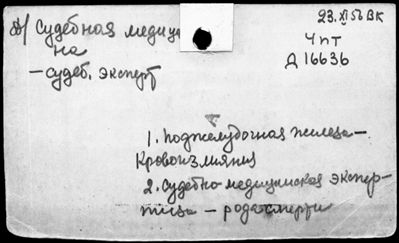 Д/ Судебная медици
на
— судеб. эксперт
23.XI 56 ВК
Ч пт
Д 16636
1. Поджелудочная железа —
Кровоизлияния
2. Судебно-медицинская экспер-
тиза — рода смерти